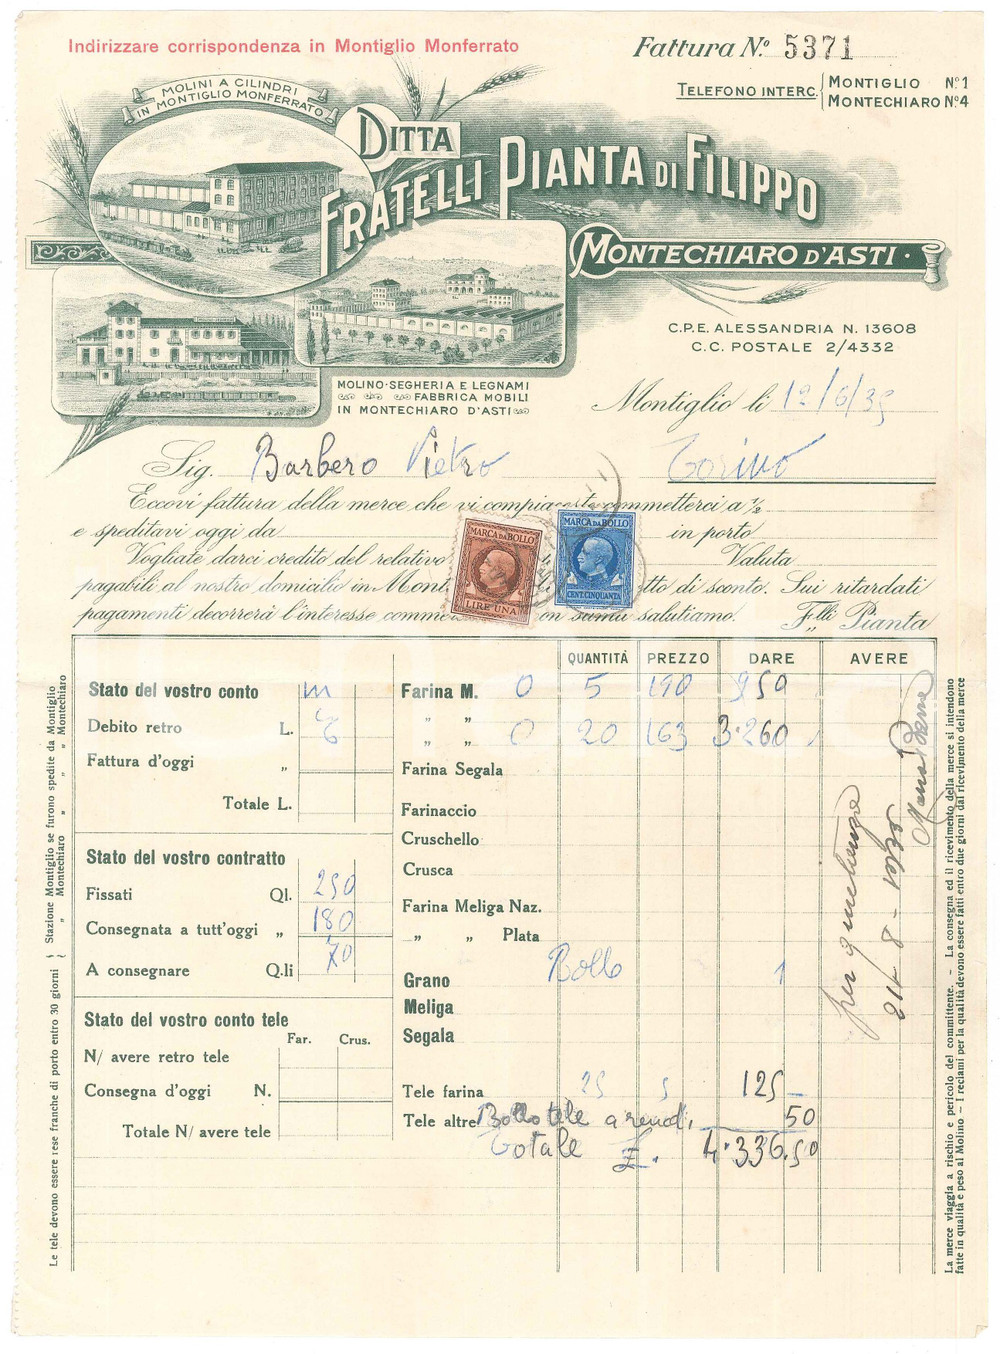 Indirizzare corrispondenza in Montiglio Monferrato
Fattura N.º 5371
TELEFONO INTERC. MONTIGLIO N.º 1
MONTECHIARO N.º 4
MOLINI A CILINDRI
IN MONTIGLIO MONFERRATO
DITTA
FRATELLI PIANTA DI FILIPPO
MONTECHIARO D'ASTI
C.P.E. ALESSANDRIA N. 13608
C.C. POSTALE 2/4332
MOLINO-SEGHERIA E LEGNAMI
FABBRICA MOBILI
IN MONTECHIARO D'ASTI
Montiglio li 12/6/35
Sig. Barbero Pietro Torino
Eccovi fattura della merce che vi compiaceste commetterci a ½
e speditavi oggi da in porto
Vogliate darci credito del relativo Valuta
pagabili al nostro domicilio in Mont tto di sconto. Sui ritardati
pagamenti decorrerà l'interesse comme on stima salutiamo. F.lli Pianta
MARCA DA BOLLO
LIRE UNA
MARCA DA BOLLO
CENT. CINQUANTA
QUANTITÀ PREZZO DARE AVERE
Stato del vostro conto m
Debito retro L.
Fattura d'oggi "
Totale L.
Stato del vostro contratto
Fissati Ql. 250
Consegnata a tutt'oggi " 180
A consegnare Q.li 70
Stato del vostro conto tele
Far. Crus.
N/ avere retro tele
Consegna d'oggi N.
Totale N/ avere tele
Farina M. 0 5 190 950
" " 0 20 163 3.260
Farina Segala
Farinaccio
Cruschello
Crusca
Farina Meliga Naz.
" " Plata
Bollo 1
Grano
Meliga
Segala
Tele farina 25 5 125 –
Tele altre Bollo tele a rend. 50
Totale £. 4.336.50
per quietanza
Le tele devono essere rese franche di porto entro 30 giorni { Stazione Montiglio se furono spedite da Montiglio
" Montechiaro " " " Montechiaro
La merce viaggia a rischio e pericolo del committente. – La consegna ed il ricevimento della merce si intendono
fatte in qualità e peso al Molino – I reclami per la qualità devono essere fatti entro due giorni dal ricevimento della merce